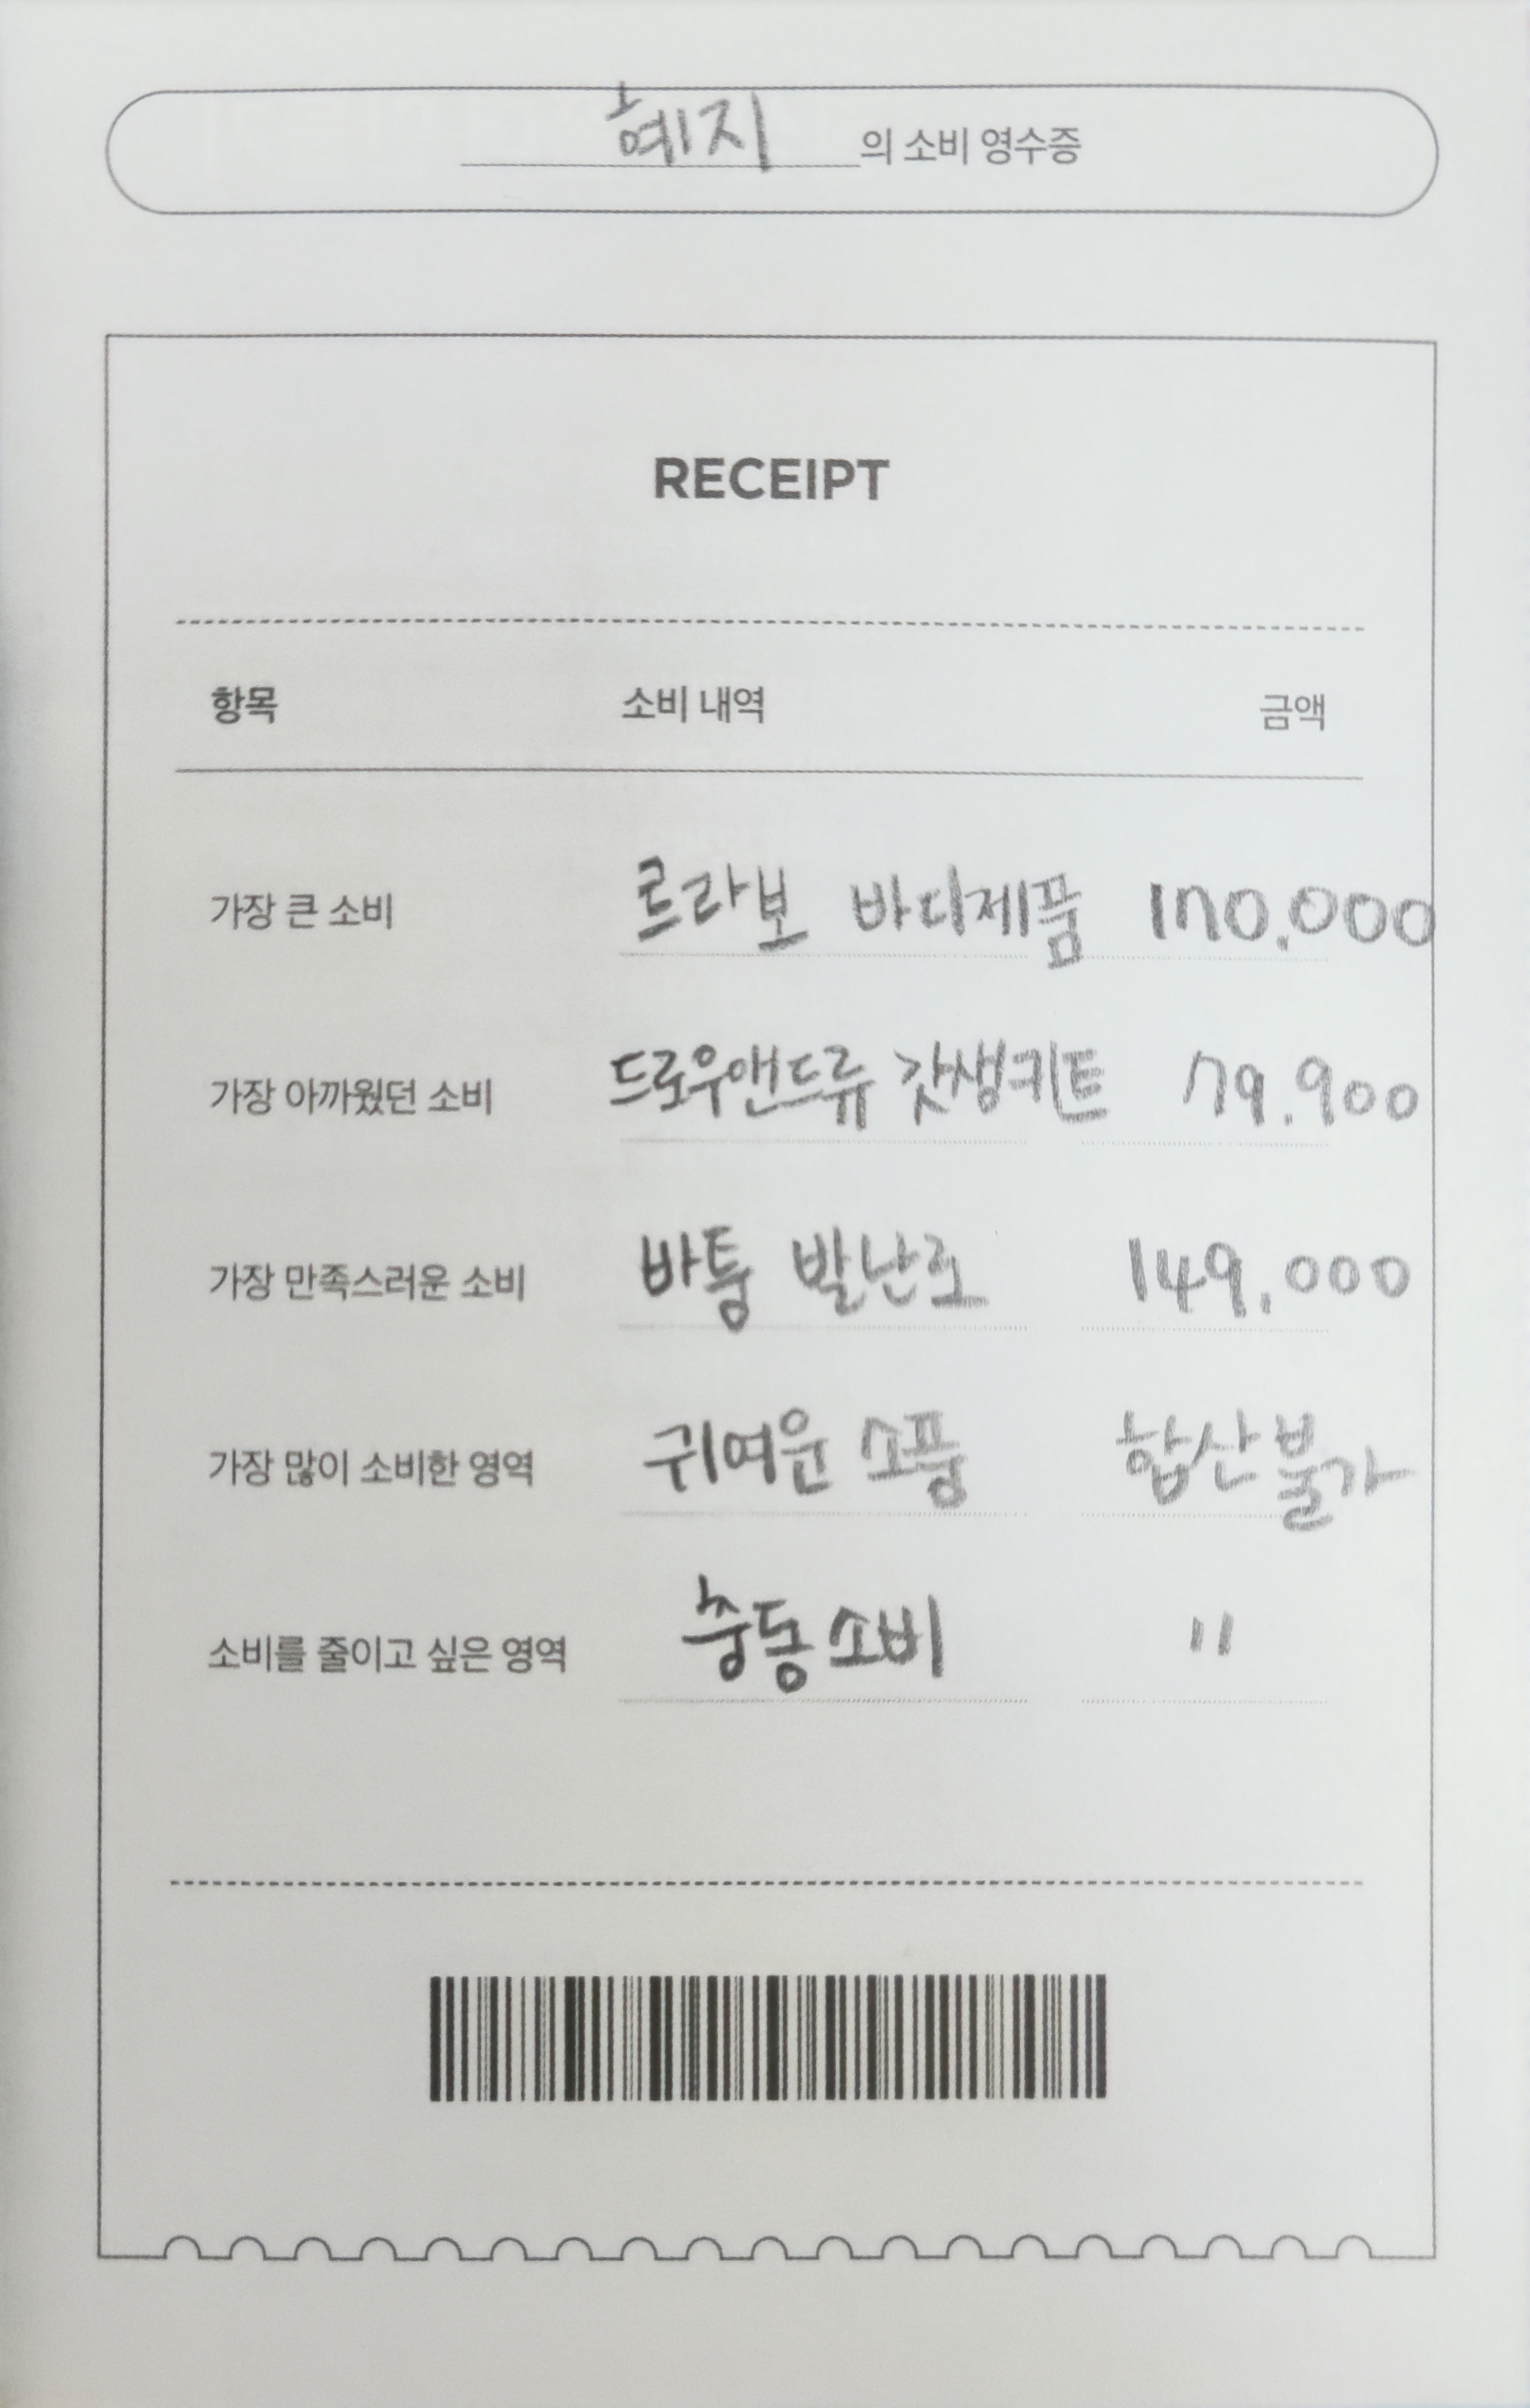 혜지의 소비 영수증
RECEIPT
항목 소비 내역 금액
가장 큰 소비 르라보 바디제품 170.000
가장 아까웠던 소비 드로우앤드류 갓생키트 79.900
가장 만족스러운 소비 바툼 발난로 149.000
가장 많이 소비한 영역 귀여운 소품 합산불가
소비를 줄이고 싶은 영역 충동소비 "